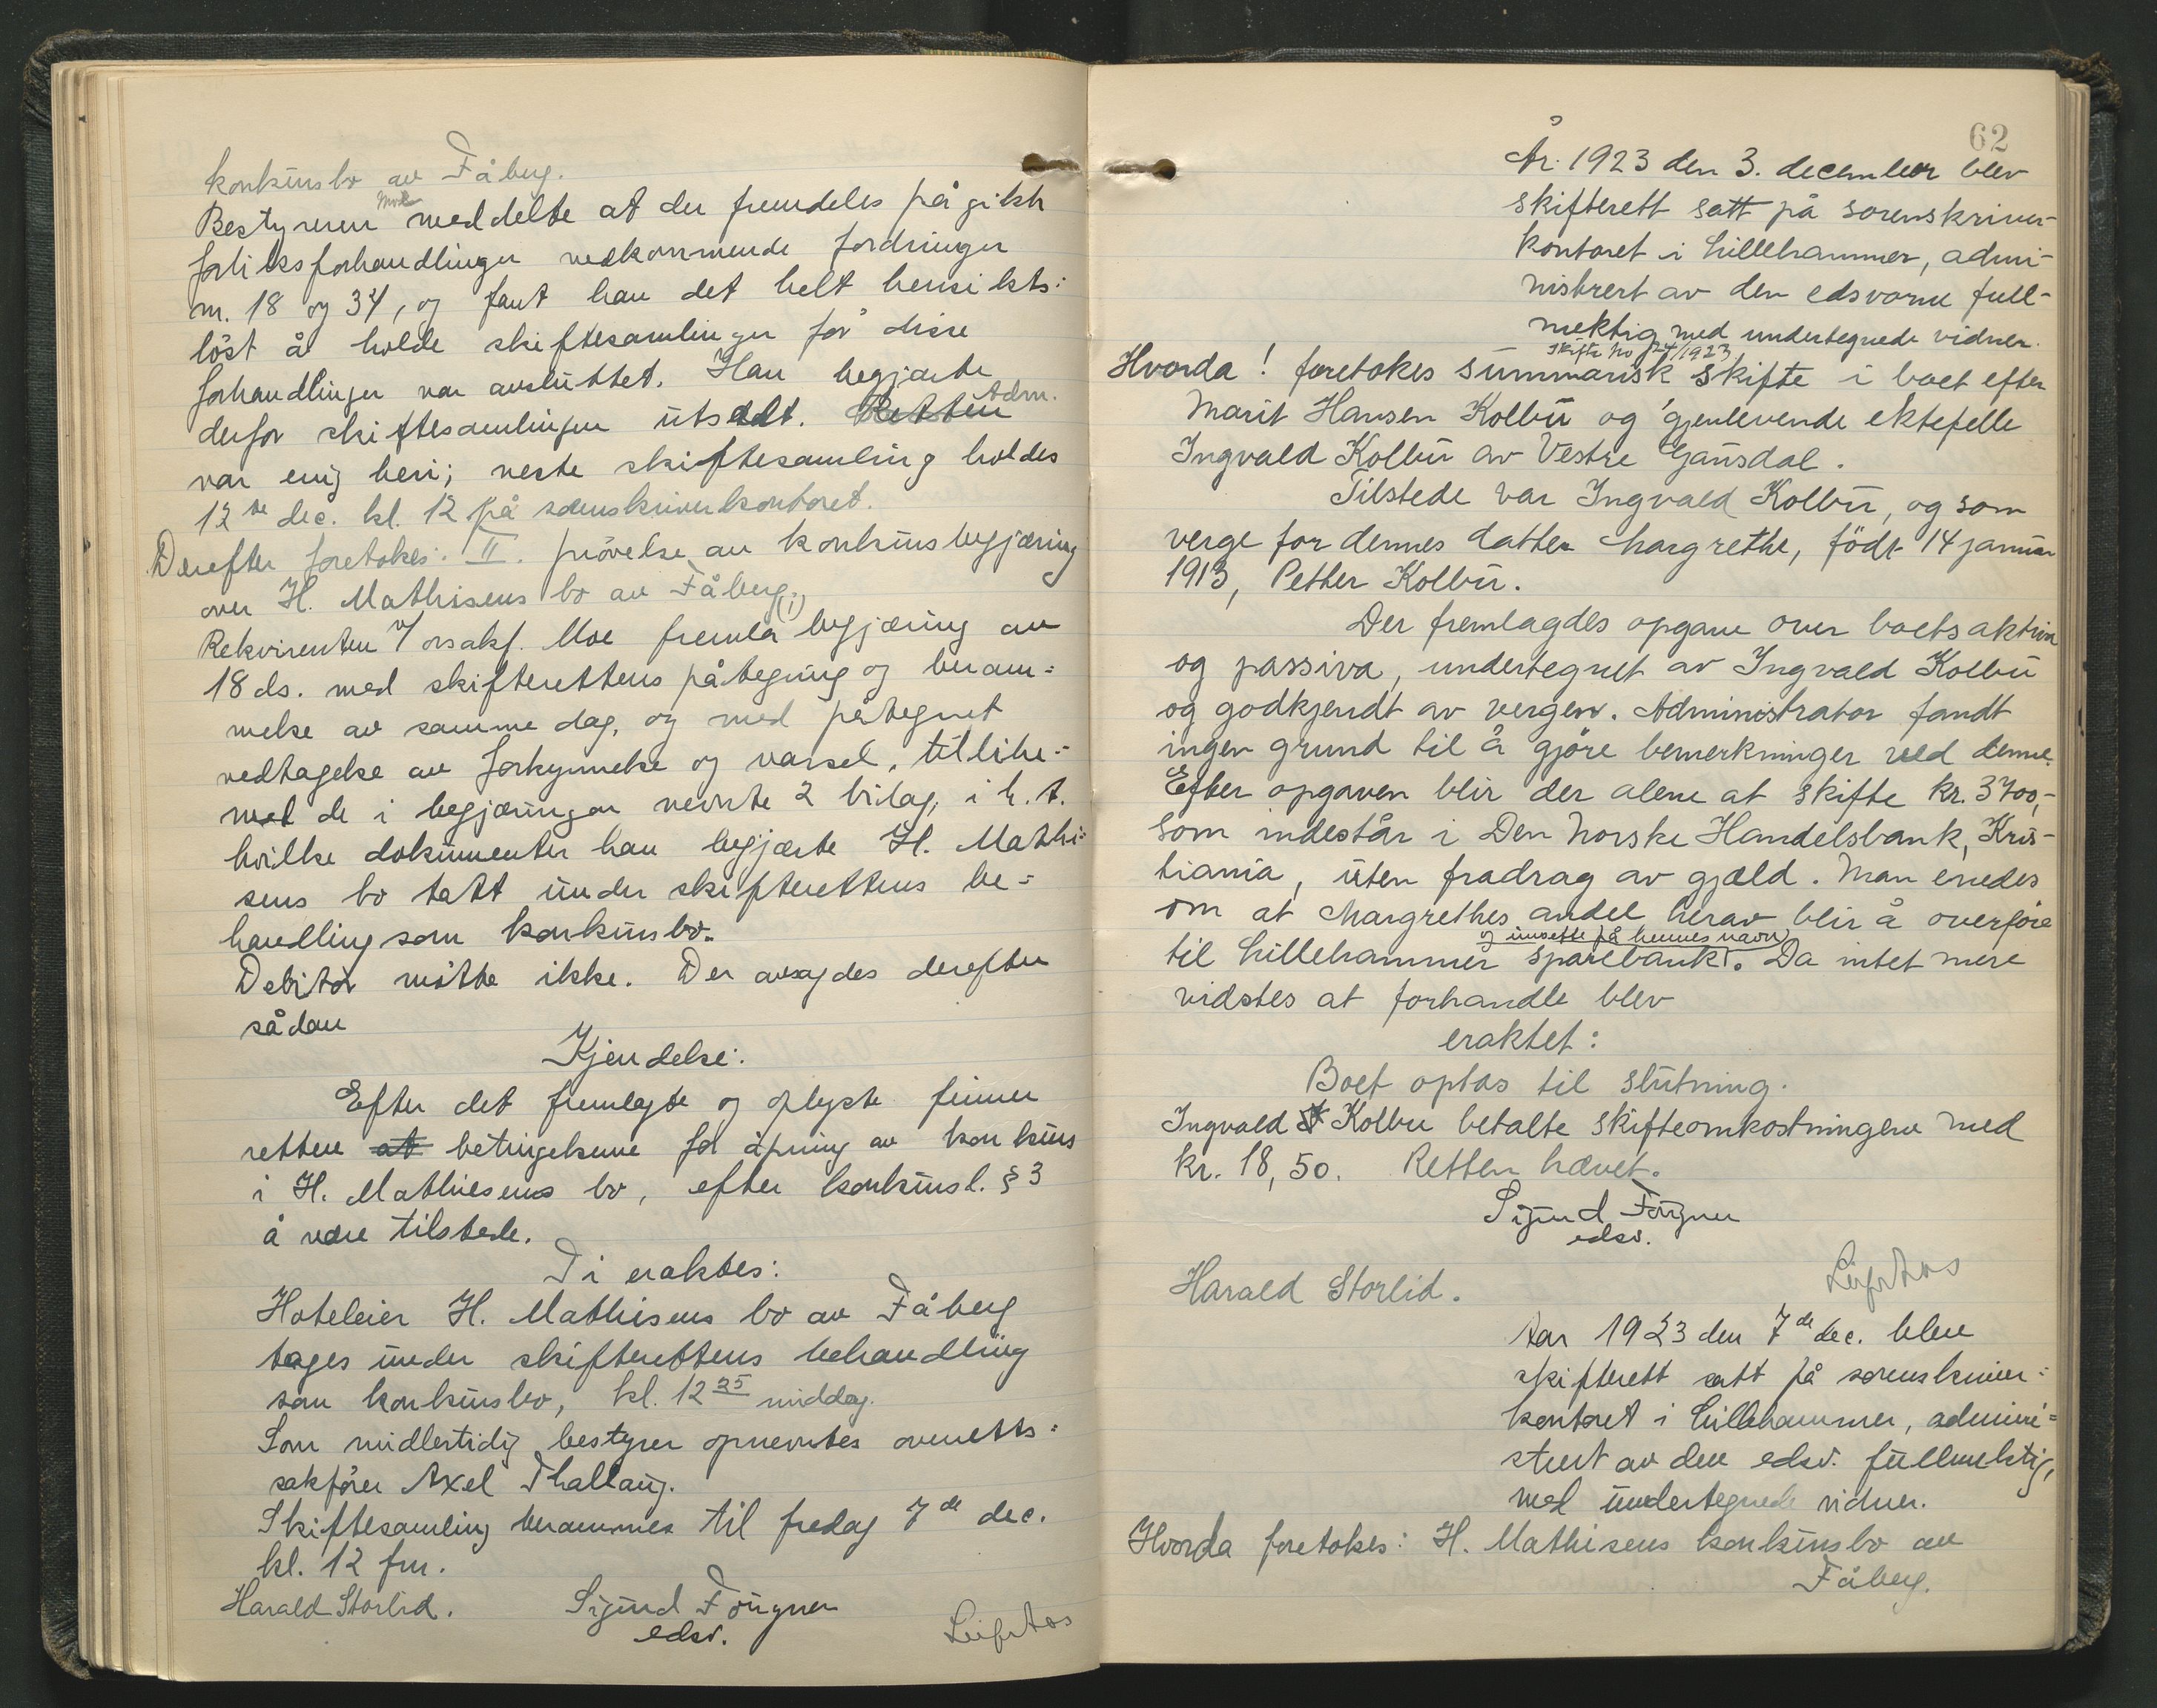 konkursbo av Fåberg.
Bestyreren Moe meddelte at der fremdeles pågikk
forliksforhandlinger vedkommende fordringer
nr. 18 og 34, og fant han det helt hensikts:
löst å holde skiftesamlinger før disse
forhandlinger var avsluttet. Han begjærte
derfor skiftesamlingen utsatt. Retten Adm.
var enig heri; neste skiftesamling holdes
12te dec. kl. 12 på sorenskriverkontoret.
Derefter foretokes: II. prövelse av konkursbegjæring
over H. Mathisens bo av Fåberg.
Rekvirenten v/ orsakf. Moe fremla (1) begjæring av
18 ds. med skifterettens påtegning og beram=
melse av samme dag, og med påtegnet
vedtagelse av forkynnelse og varsel, tillike=
med de i begjæringen nevnte 2 bilag, i h. t.
hvilke dokumenter han begjærte H. Mathi=
sens bo tatt under skifterettens be=
handling som konkursbo.
Debitor mötte ikke. Der avsagdes derefter
sådan
Kjendelse:
Efter det fremlagte og oplyste finner
retten at betingelsene for åpning av konkurs
i H. Mathiesens bo, efter konkursl. § 3
å være tilstede.
Ti eraktes:
Hoteleier H. Mathisens bo av Fåberg
tages under skifterettens behandling
som konkursbo, kl. 12 25 middag.
Som midlertidig bestyrer opnevntes overretts=
sakförer Axel Thallaug.
Skiftesamling berammes til fredag 7de dec.
kl. 12 fm.
Harald Storlid. Sigurd Fougner
edsv.
Leif Aas
62
År 1923 den 3. december blev
skifterett satt på sorenskriver-
kontoret i Lillehammer, admi-
nistrert av den edsvorne full-
mektig med undertegnede vidner.
Skifte No 24/1923
Hvorda! foretokes summarisk skifte i boet efter
Marit Hansen Kolbu og gjenlevende ektefelle
Ingvald Kolbu av Vestre Gausdal.
Tilstede var Ingvald Kolbu, og som
verge for dennes datter Margrethe, födt 14 januar
1913, Petter Kolbu.
Der fremlagdes opgave over boets aktiva
og passiva, undertegnet av Ingvald Kolbu
og godkjendt av vergen. Administrator fandt
ingen grund til å gjöre bemerkninger ved denne.
Efter opgaven blir der alene at skifte kr. 3700,-
som indestår i Den Norske Handelsbank, Kris-
tiania, uten fradrag av gjæld. Man enedes
om at Margrethes andel herav blir å overföre
og innsette på hennes navn
til Lillehammer sparebank. Da intet mere
vidstes at forhandle blev
eraktet:
Boet optas til slutning.
Ingvald Kolbu betalte skifteomkostningene med
kr. 18,50. Retten hævet.
Sigurd Fougner
edsv.
Harald Storlid. Leif Aas
Aar 1923 den 7de dec. blev
skifterett satt på sorenskriver=
kontoret i Lillehammer, admini=
strert av den edsv. fullmektig,
med undertegnede vidner.
Hvorda foretokes: H. Mathisens konkursbo av
Fåberg.